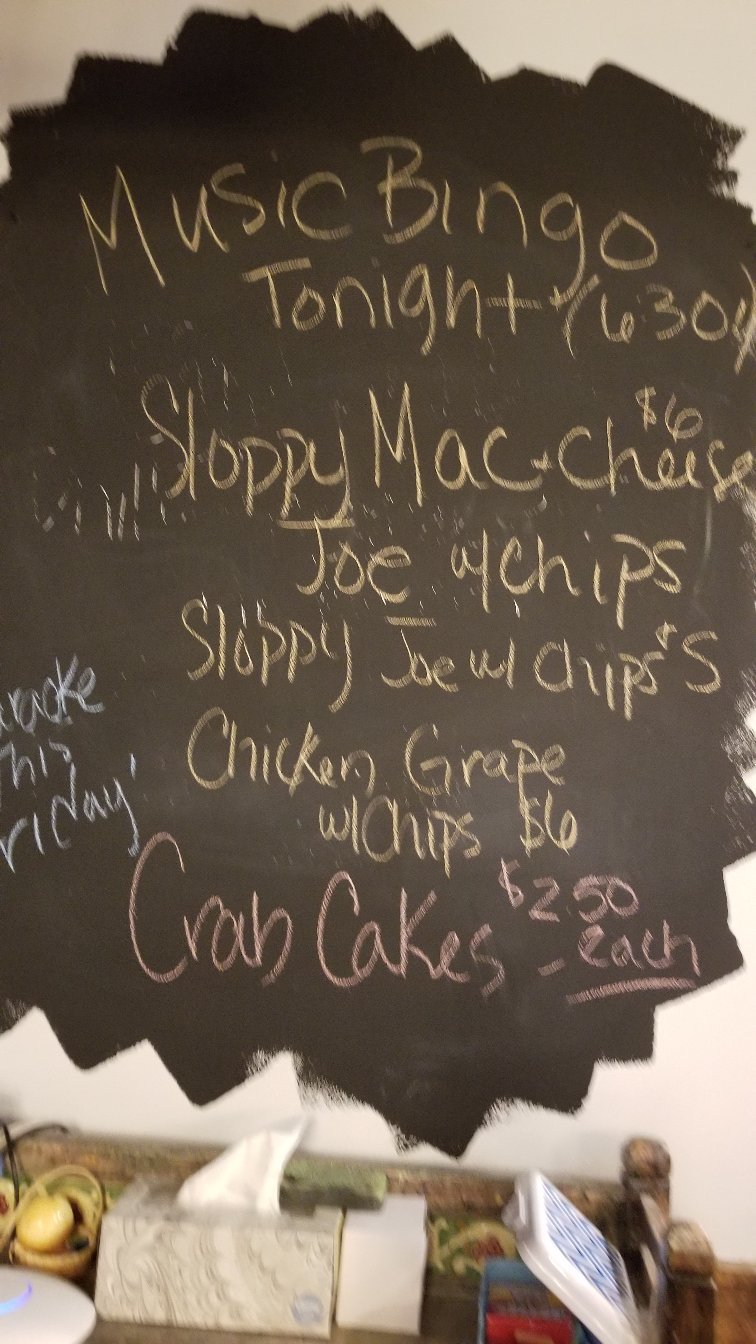 Music Bingo
Tonight (630
$6
Sloppy Mac+Cheese
Joe w/chips
Sloppy Joe w/ Chips $5
Chicken Grape
w/Chips $6
Crab Cakes $2.50
- each
This